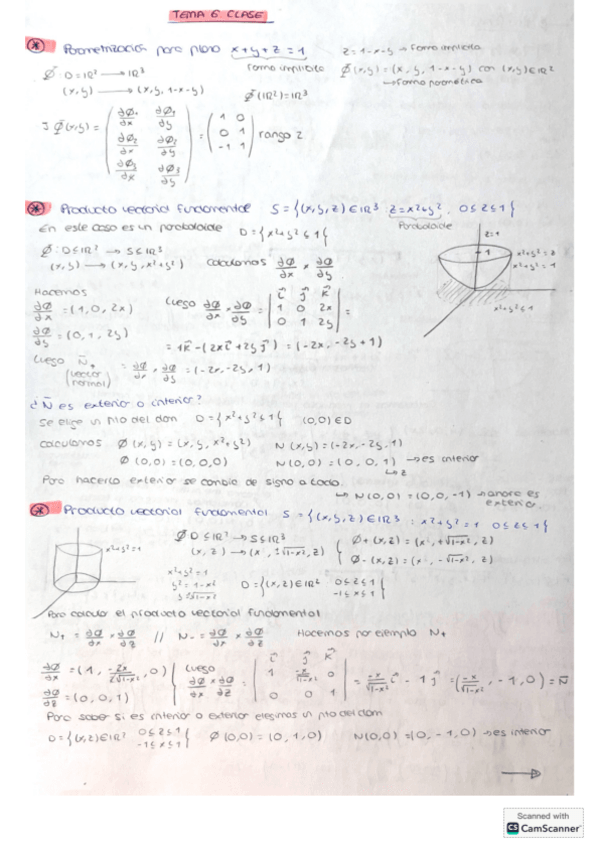 TEMA 6 CLASE
* Parametrización para plano x+y+z=1 z=1-x-y → forma implícita
forma implícita Φ(x,y)=(x, y, 1-x-y) con (x,y)∈ℝ²
→ forma paramétrica
Φ: D=ℝ² → ℝ³
(x,y) → (x, y, 1-x-y) Φ(ℝ²)=ℝ³
JΦ(x,y) = (∂Φ₁/∂x ∂Φ₁/∂y; ∂Φ₂/∂x ∂Φ₂/∂y; ∂Φ₃/∂x ∂Φ₃/∂y) = (1 0; 0 1; -1 1) rango 2
* Producto vectorial fundamental S={(x,y,z)∈ℝ³ : z=x²+y², 0≤z≤1}
En este caso es un paraboloide D={x²+y²≤1} Paraboloide
Φ: D⊆ℝ² → S⊆ℝ³
(x,y) → (x, y, x²+y²) Calculamos ∂Φ/∂x × ∂Φ/∂y
z=1
1
x²+y²=z
x²+y²=1
x²+y²≤1
Hacemos
∂Φ/∂x = (1, 0, 2x) Luego ∂Φ/∂x × ∂Φ/∂y = |i j k; 1 0 2x; 0 1 2y| =
∂Φ/∂y = (0, 1, 2y) = 1k - (2xi + 2yj) = (-2x, -2y + 1)
Luego N₊ = ∂Φ/∂x × ∂Φ/∂y = (-2x, -2y, 1)
(vector normal)
¿N es exterior o interior?
Se elige un pto del dom D={x²+y²≤1} (0,0)∈D
calculamos Φ(x,y)=(x, y, x²+y²) N(x,y)=(-2x, -2y, 1)
Φ(0,0)=(0,0,0) N(0,0)=(0,0,1) → es interior
↳ z
Para hacerlo exterior se cambia de signo a todo.
↳ N(0,0)=(0,0,-1) → ahora es exterior
* Producto vectorial fundamental S={(x,y,z)∈ℝ³ : x²+y²=1 0≤z≤1}
x²+y²=1
Φ: D⊆ℝ² → S⊆ℝ³
(x,z) → (x, ±√1-x², z) { Φ+(x,z)=(x, +√1-x², z)
Φ-(x,z)=(x, -√1-x², z)
x²+y²=1
y²=1-x²
y=±√1-x²
D={(x,z)∈ℝ² 0≤z≤1 -1≤x≤1}
Para calcular el producto vectorial fundamental
N₊ = ∂Φ/∂x × ∂Φ/∂z // N₋ = ∂Φ/∂x × ∂Φ/∂z Hacemos por ejemplo N₊
∂Φ/∂x = (1, -2x/2√1-x², 0) Luego ∂Φ/∂x × ∂Φ/∂z = |i j k; 1 -x/√1-x² 0; 0 0 1| = -x/√1-x² i - 1j = (-x/√1-x², -1, 0) = N
∂Φ/∂z = (0, 0, 1)
Para saber si es interior o exterior elegimos un pto del dom
D={(x,z)∈ℝ² 0≤z≤1 -1≤x≤1} Φ(0,0)=(0,1,0) N(0,0)=(0,-1,0) → es interior
→
Scanned with
CS CamScanner